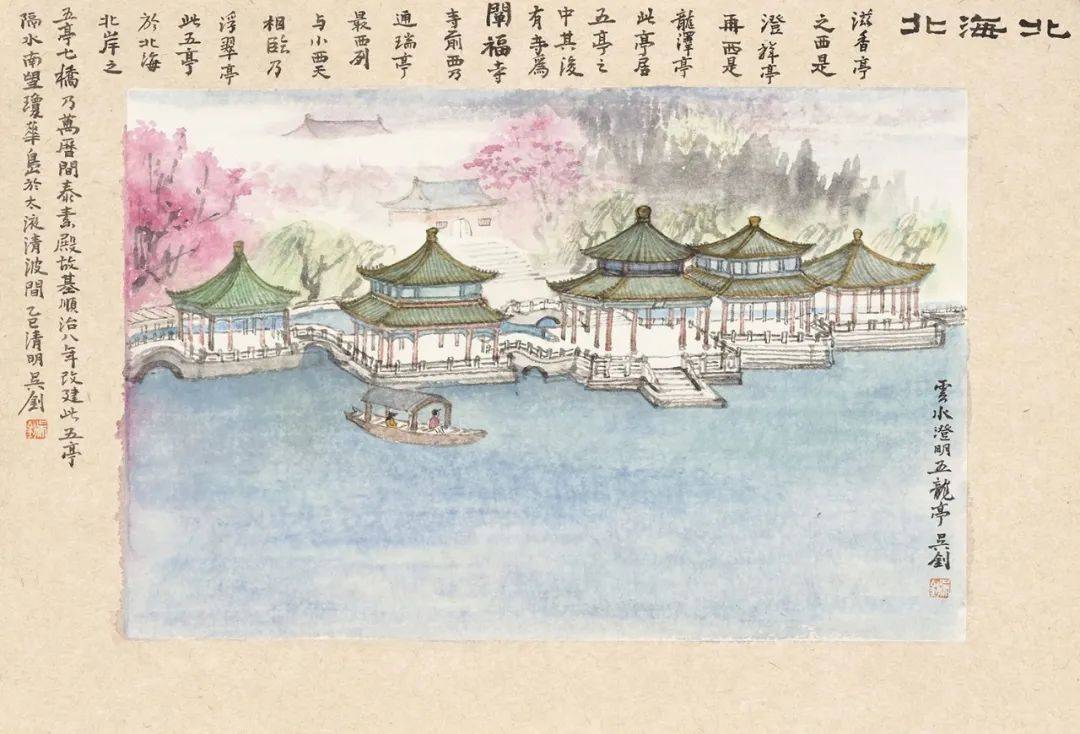 北海北
滋香亭
之西是
澄祥亭
再西是
龍澤亭
此亭居
五亭之
中其後
有寺為
闡福寺
寺前西乃
通瑞亭
最西列
与小西天
相臨乃
浮翠亭
此五亭
於北海
北岸之
五亭七橋乃萬曆間泰素殿故基順治八年改建此五亭
隔水南望瓊華島於太液清波間乙巳清明吳釗
雲水澄明五龍亭吳釗